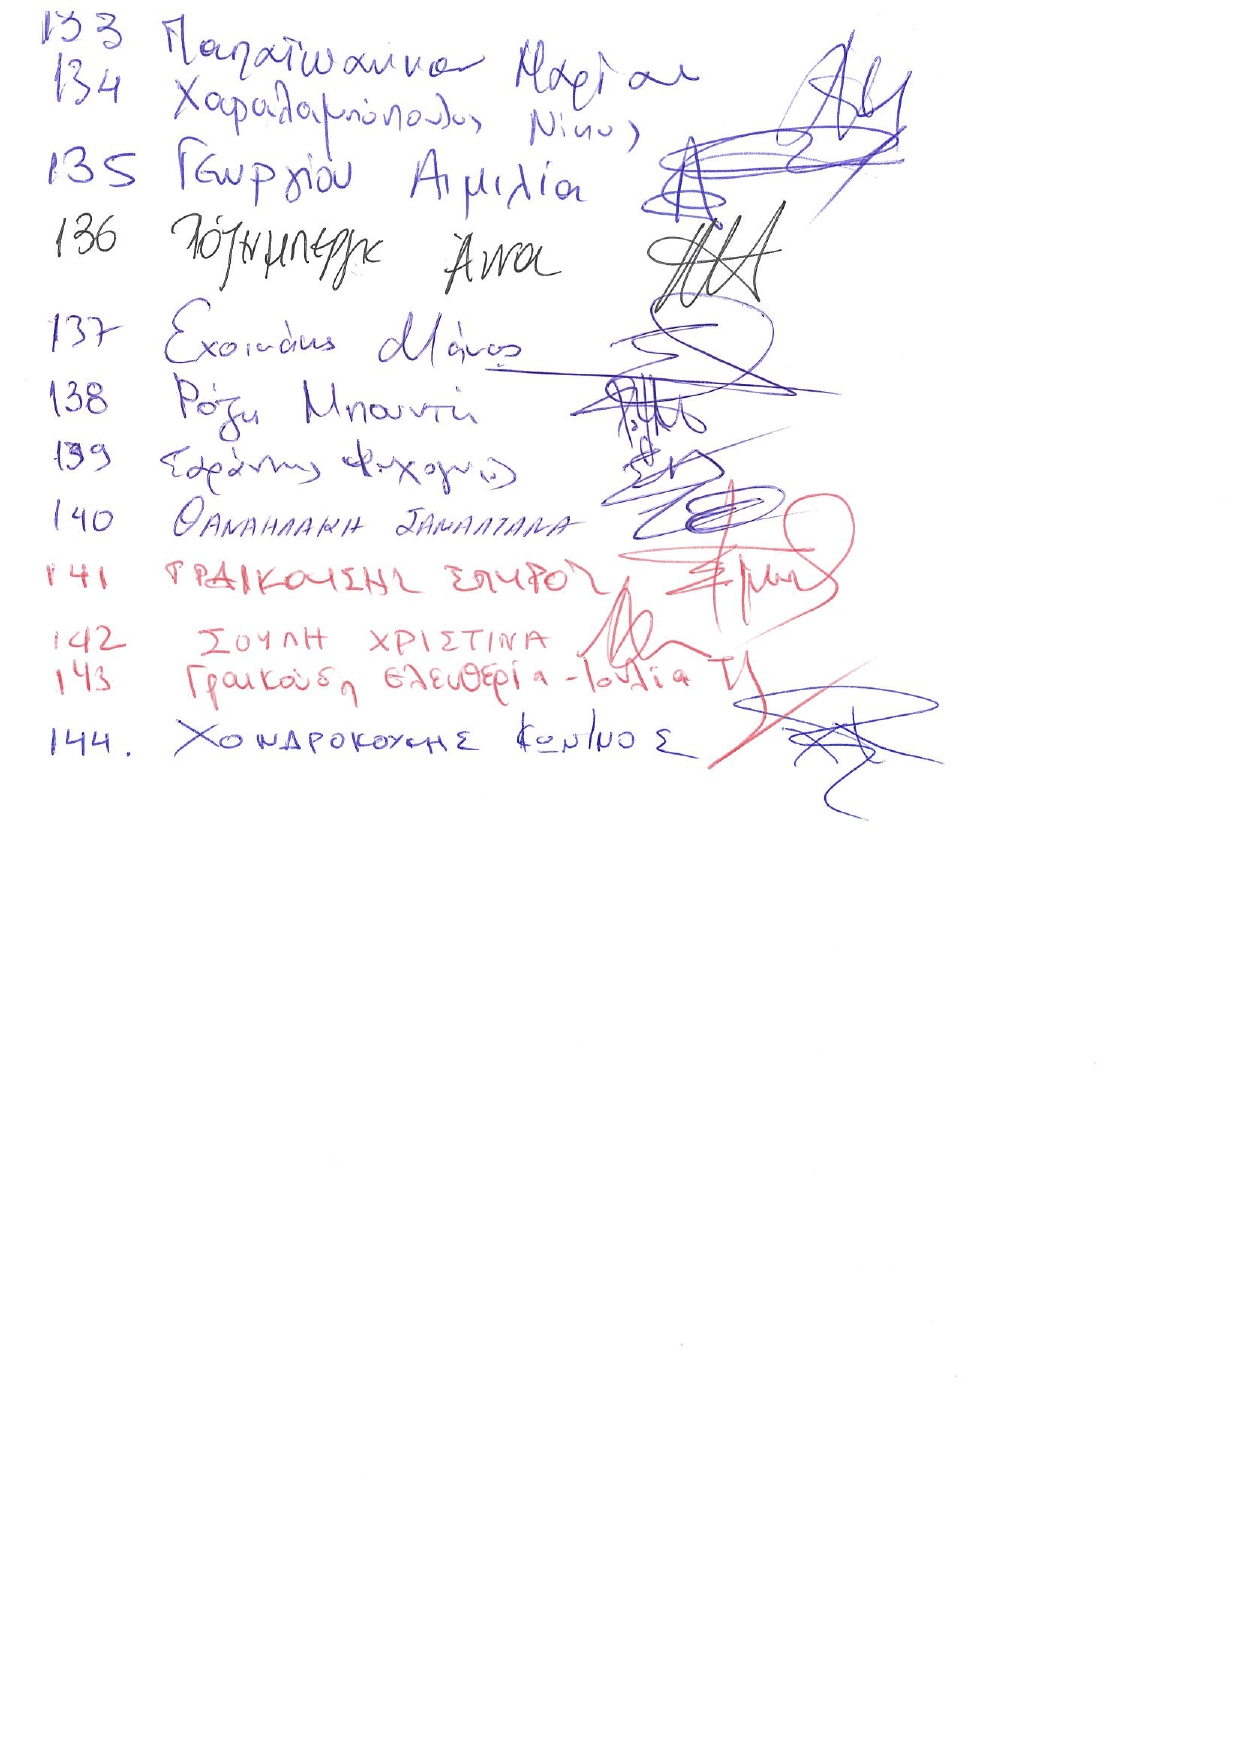 133 Παπαϊωάννου Μαρία
134 Χαραλαμπόπουλος Νίκος
135 Γεωργίου Αιμιλία
136 Ρόζενμπεργκ Άννα
137 Σχοινάκης Μάνος
138 Ρόζη Μπαντή
139 Σαράντης Ψυχογιός
140 ΘΑΝΑΗΛΑΚΗ
141 ΓΡΑΙΚΟΥΣΗΣ ΣΠΥΡΟΣ
142 ΣΟΥΛΗ ΧΡΙΣΤΙΝΑ
143 Γραικούση Ελευθερία - Ιουλία
144. ΧΟΝΔΡΟΚΟΥΚΗΣ ΚΩΝ/ΝΟΣ